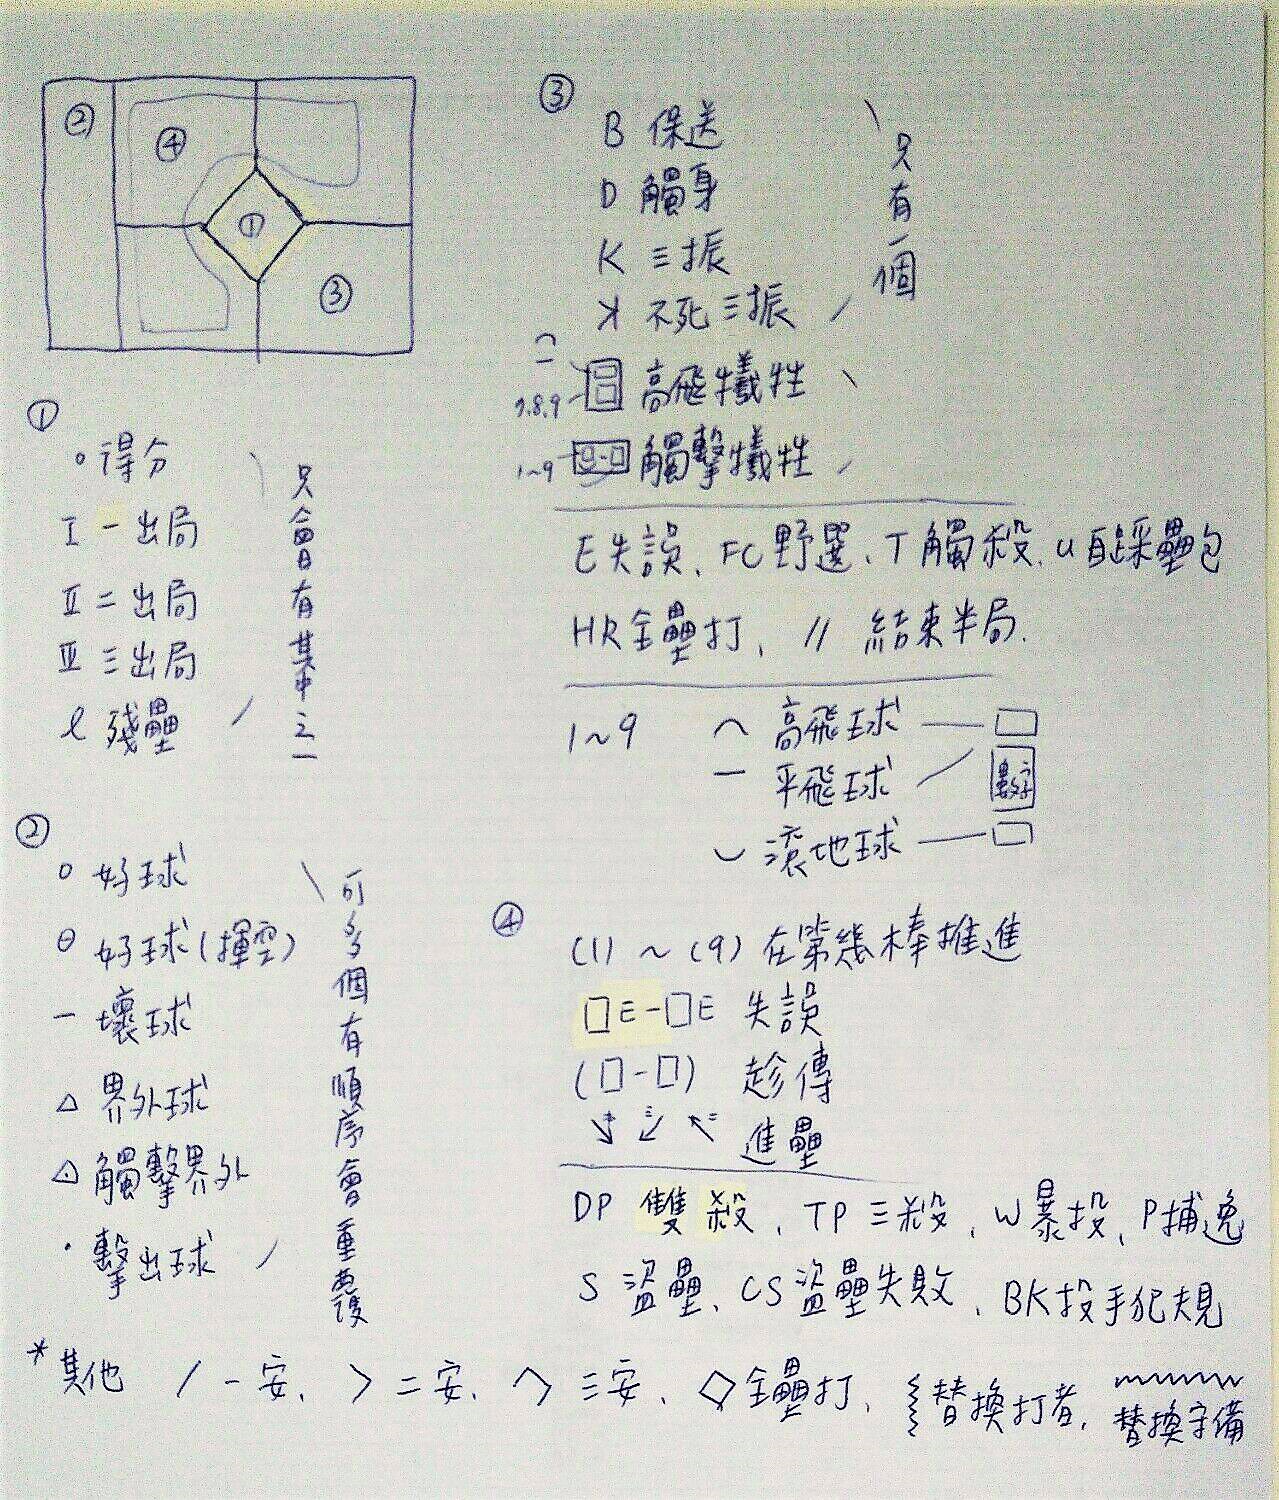 ②
④
①
③
①
○ 得分
I 一出局
II 二出局
III 三出局
ℓ 殘壘
只會有其中之一
②
○ 好球
⊖ 好球(揮空)
一 壞球
△ 界外球
◬ 觸擊界外
· 擊出球
可多個有順序會重覆
③
B 保送
D 觸身
K 三振
ꓘ 不死三振
只有一個
7.8.9 高飛犧牲
1~9 觸擊犧牲
E失誤、FC野選、T觸殺、U自踩壘包
HR全壘打、// 結束半局.
1~9 ⌒ 高飛球
一 平飛球
數字
⌣ 滾地球
④
(1) ~ (9) 在第幾棒推進
□E-□E 失誤
(□-□) 趁傳
↘ ↙ ↖ 進壘
DP 雙殺、TP 三殺、W暴投、P捕逸
S 盜壘、CS盜壘失敗、BK投手犯規
*其他 / 一安、> 二安、ㄟ 三安、◇全壘打、替換打者、替換守備